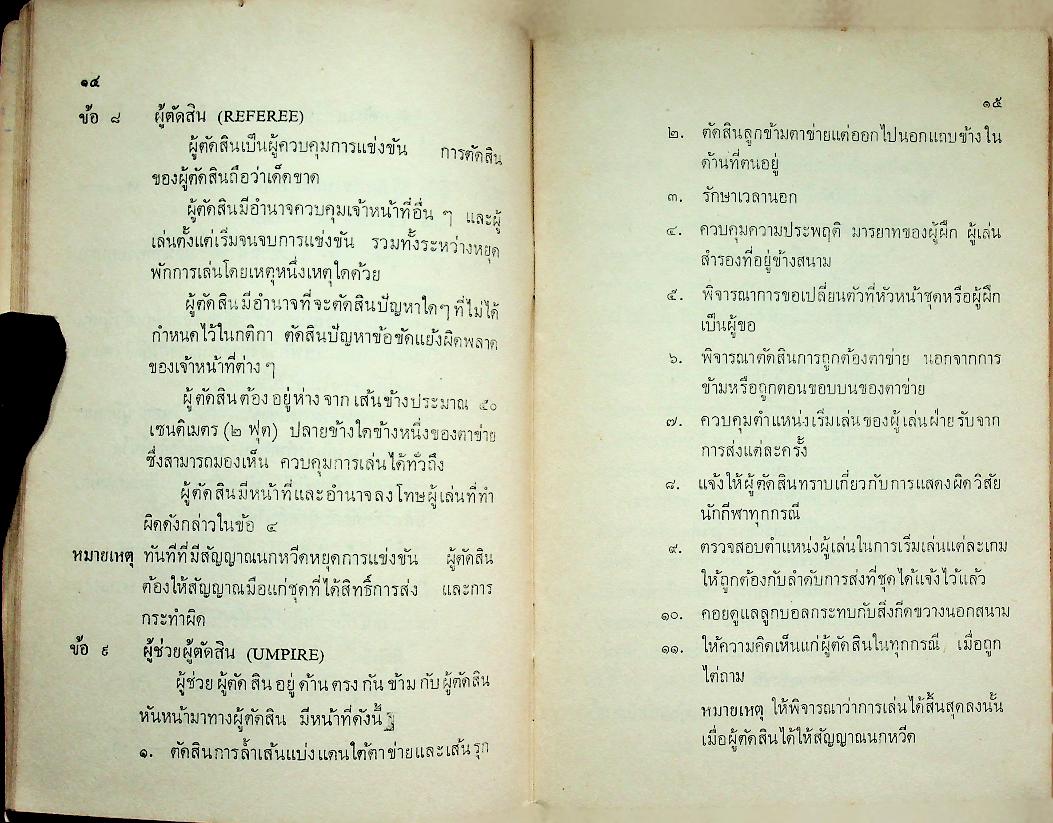 ๑๔
ข้อ ๘ ผู้ตัดสิน (REFEREE)
ผู้ตัดสินเป็นผู้ควบคุมการแข่งขัน การตัดสิน
ของผู้ตัดสินถือว่าเด็ดขาด
ผู้ตัดสินมีอำนาจควบคุมเจ้าหน้าที่อื่น ๆ และผู้
เล่นตั้งแต่เริ่มจนจบการแข่งขัน รวมทั้งระหว่างหยุด
พักการเล่นโดยเหตุหนึ่งเหตุใดด้วย
ผู้ตัดสินมีอำนาจที่จะตัดสินปัญหาใดๆ ที่ไม่ได้
กำหนดไว้ในกติกา ตัดสินปัญหาข้อขัดแย้งผิดพลาด
ของเจ้าหน้าที่ต่าง ๆ
ผู้ตัดสินต้องอยู่ห่างจากเส้นข้างประมาณ ๕๐
เซนติเมตร (๒ ฟุต) ปลายข้างใดข้างหนึ่งของตาข่าย
ซึ่งสามารถมองเห็น ควบคุมการเล่นได้ทั่วถึง
ผู้ตัดสินมีหน้าที่และอำนาจลงโทษผู้เล่นที่ทำ
ผิดดังกล่าวในข้อ ๔
หมายเหตุ ทันทีที่มีสัญญาณนกหวีดหยุดการแข่งขัน ผู้ตัดสิน
ต้องให้สัญญาณมือแก่ชุดที่ได้สิทธิ์การส่ง และการ
กระทำผิด
ข้อ ๙ ผู้ช่วยผู้ตัดสิน (UMPIRE)
ผู้ช่วยผู้ตัดสินอยู่ด้านตรงกันข้ามกับผู้ตัดสิน
หันหน้ามาทางผู้ตัดสิน มีหน้าที่ดังนี้
๑. ตัดสินการล้ำเส้นแบ่งแดนใต้ตาข่ายและเส้นรุก
๑๕
๒. ตัดสินลูกข้ามตาข่ายแต่ออกไปนอกแถบข้าง ใน
ด้านที่ตนอยู่
๓. รักษาเวลานอก
๔. ควบคุมความประพฤติ มารยาทของผู้ฝึก ผู้เล่น
สำรองที่อยู่ข้างสนาม
๕. พิจารณาการขอเปลี่ยนตัวที่หัวหน้าชุดหรือผู้ฝึก
เป็นผู้ขอ
๖. พิจารณาตัดสินการถูกต้องตาข่าย นอกจากการ
ข้ามหรือถูกตอนขอบบนของตาข่าย
๗. ควบคุมตำแหน่งเริ่มเล่นของผู้เล่นฝ่ายรับจาก
การส่งแต่ละครั้ง
๘. แจ้งให้ผู้ตัดสินทราบเกี่ยวกับการแสดงผิดวิสัย
นักกีฬาทุกกรณี
๙. ตรวจสอบตำแหน่งผู้เล่นในการเริ่มเล่นแต่ละเกม
ให้ถูกต้องกับลำดับการส่งที่ชุดได้แจ้งไว้แล้ว
๑๐. คอยดูแลลูกบอลกระทบกับสิ่งกีดขวางนอกสนาม
๑๑. ให้ความคิดเห็นแก่ผู้ตัดสินในทุกกรณี เมื่อถูก
ไต่ถาม
หมายเหตุ ให้พิจารณาว่าการเล่นได้สิ้นสุดลงนั้น
เมื่อผู้ตัดสินได้ให้สัญญาณนกหวีด